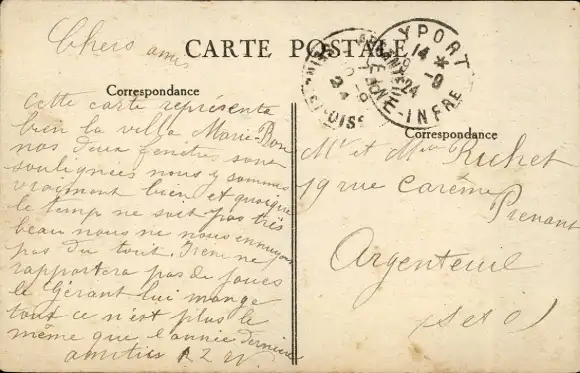 Chers amis
CARTE POSTALE
Correspondance
Cette carte représente
bien la villa Marie-Bon
nos deux fenêtres sont
soulignées nous y sommes
vraiment bien et quoique
le temp ne soit pas très
beau nous ne nous ennuyons
pas du tout, Irene ne
rapportera pas de joues
le Gérant lui mange
tout ce n'est plus le
même que l'année dernière
amitiés
YPORT
14 *
9 -9
24
SEINE-INFRE
ARGENTEUIL
24
Correspondance
Mr et Mme Richet
19 rue Carême
Prenant
Argenteuil
(S et O)